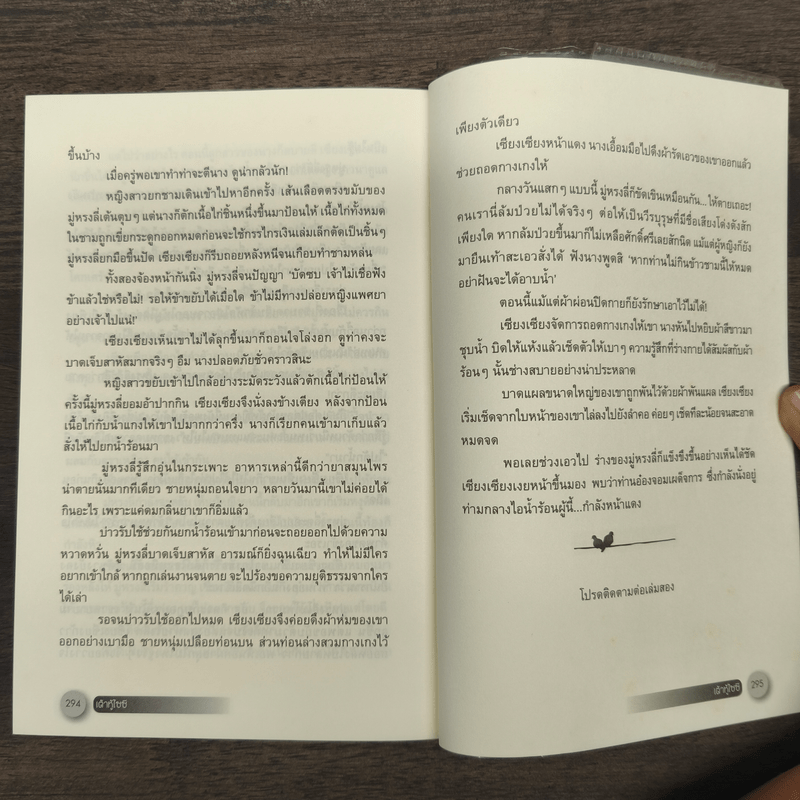 ขึ้นบ้าง
เมื่อครู่พอเขาทำท่าจะตีนาง ดูน่ากลัวนัก!
หญิงสาวยกชามเดินเข้าไปหาอีกครั้ง เส้นเลือดตรงขมับของ
มู่หรงลี่เต้นตุบๆ แต่นางก็ตักเนื้อไก่ชิ้นหนึ่งขึ้นมาป้อนให้ เนื้อไก่ทั้งหมด
ในชามถูกเขี่ยกระดูกออกหมดก่อนจะใช้กรรไกรเงินเล่มเล็กตัดเป็นชิ้นๆ
มู่หรงลี่ยกมือขึ้นปัด เซียงเซียงก็รีบถอยหลังหนีจนเกือบทำชามหล่น
ทั้งสองจ้องหน้ากันนิ่ง มู่หรงลี่จนปัญญา 'บัดซบ เจ้าไม่เชื่อฟัง
ข้าแล้วใช่หรือไม่! รอให้ข้าขยับได้เมื่อใด ข้าไม่มีทางปล่อยหญิงแพศยา
อย่างเจ้าไปแน่!'
เซียงเซียงเห็นเขาไม่ได้ลุกขึ้นมาก็ถอนใจโล่งอก ดูท่าคงจะ
บาดเจ็บสาหัสมากจริงๆ อืม นางปลอดภัยชั่วคราวสินะ
หญิงสาวขยับเข้าไปใกล้อย่างระมัดระวังแล้วตักเนื้อไก่ป้อนให้
ครั้งนี้มู่หรงลี่ยอมอ้าปากกิน เซียงเซียงจึงนั่งลงข้างเตียง หลังจากป้อน
เนื้อไก่กับน้ำแกงให้เขาไปมากกว่าครึ่ง นางก็เรียกคนเข้ามาเก็บแล้ว
สั่งให้ไปยกน้ำร้อนมา
มู่หรงลี่รู้สึกอุ่นในกระเพาะ อาหารเหล่านี้ดีกว่ายาสมุนไพร
น่าตายนั่นมากทีเดียว ชายหนุ่มถอนใจยาว หลายวันมานี้เขาไม่ค่อยได้
กินอะไร เพราะแค่ดมกลิ่นยาเขาก็อิ่มแล้ว
บ่าวรับใช้ช่วยกันยกน้ำร้อนเข้ามาก่อนจะถอยออกไปด้วยความ
หวาดหวั่น มู่หรงลี่บาดเจ็บสาหัส อารมณ์ก็ยิ่งฉุนเฉียว ทำให้ไม่มีใคร
อยากเข้าใกล้ หากถูกเล่นงานจนตาย จะไปร้องขอความยุติธรรมจากใคร
ได้เล่า
รอจนบ่าวรับใช้ออกไปหมด เซียงเซียงจึงค่อยดึงผ้าห่มของเขา
ออกอย่างเบามือ ชายหนุ่มเปลือยท่อนบน ส่วนท่อนล่างสวมกางเกงไว้
294 เต้าทู่ไซซี
เพียงตัวเดียว
เซียงเซียงหน้าแดง นางเอื้อมมือไปดึงผ้ารัดเอวของเขาออกแล้ว
ช่วยถอดกางเกงให้
กลางวันแสกๆ แบบนี้ มู่หรงลี่ก็ขัดเขินเหมือนกัน...ให้ตายเถอะ!
คนเรานี่ล้มป่วยไม่ได้จริงๆ ต่อให้เป็นวีรบุรุษที่มีชื่อเสียงโด่งดังสัก
เพียงใด หากล้มป่วยขึ้นมาก็ไม่เหลือศักดิ์ศรีเลยสักนิด แม้แต่ผู้หญิงก็ยัง
มายืนเท้าสะเอวสั่งได้ ฟังนางพูดสิ 'หากท่านไม่กินข้าวชามนี้ให้หมด
อย่าฝันจะได้อาบน้ำ'
ตอนนี้แม้แต่ผ้าผ่อนปิดกายก็ยังรักษาเอาไว้ไม่ได้!
เซียงเซียงจัดการถอดกางเกงให้เขา นางหันไปหยิบผ้าสีขาวมา
ชุบน้ำ บิดให้แห้งแล้วเช็ดตัวให้เบาๆ ความรู้สึกที่ร่างกายได้สัมผัสกับผ้า
ร้อนๆ นั้นช่างสบายอย่างน่าประหลาด
บาดแผลขนาดใหญ่ของเขาถูกพันไว้ด้วยผ้าพันแผล เซียงเซียง
เริ่มเช็ดจากใบหน้าของเขาไล่ลงไปยังลำคอ ค่อยๆ เช็ดทีละน้อยจนสะอาด
หมดจด
พอเลยช่วงเอวไป ร่างของมู่หรงลี่ก็แข็งขึงขึ้นอย่างเห็นได้ชัด
เซียงเซียงเงยหน้าขึ้นมอง พบว่าท่านอ๋องจอมเผด็จการ ซึ่งกำลังนั่งอยู่
ท่ามกลางไอน้ำร้อนผู้นี้...กำลังหน้าแดง
โปรดติดตามต่อเล่มสอง
เต้าทู่ไซซี 295